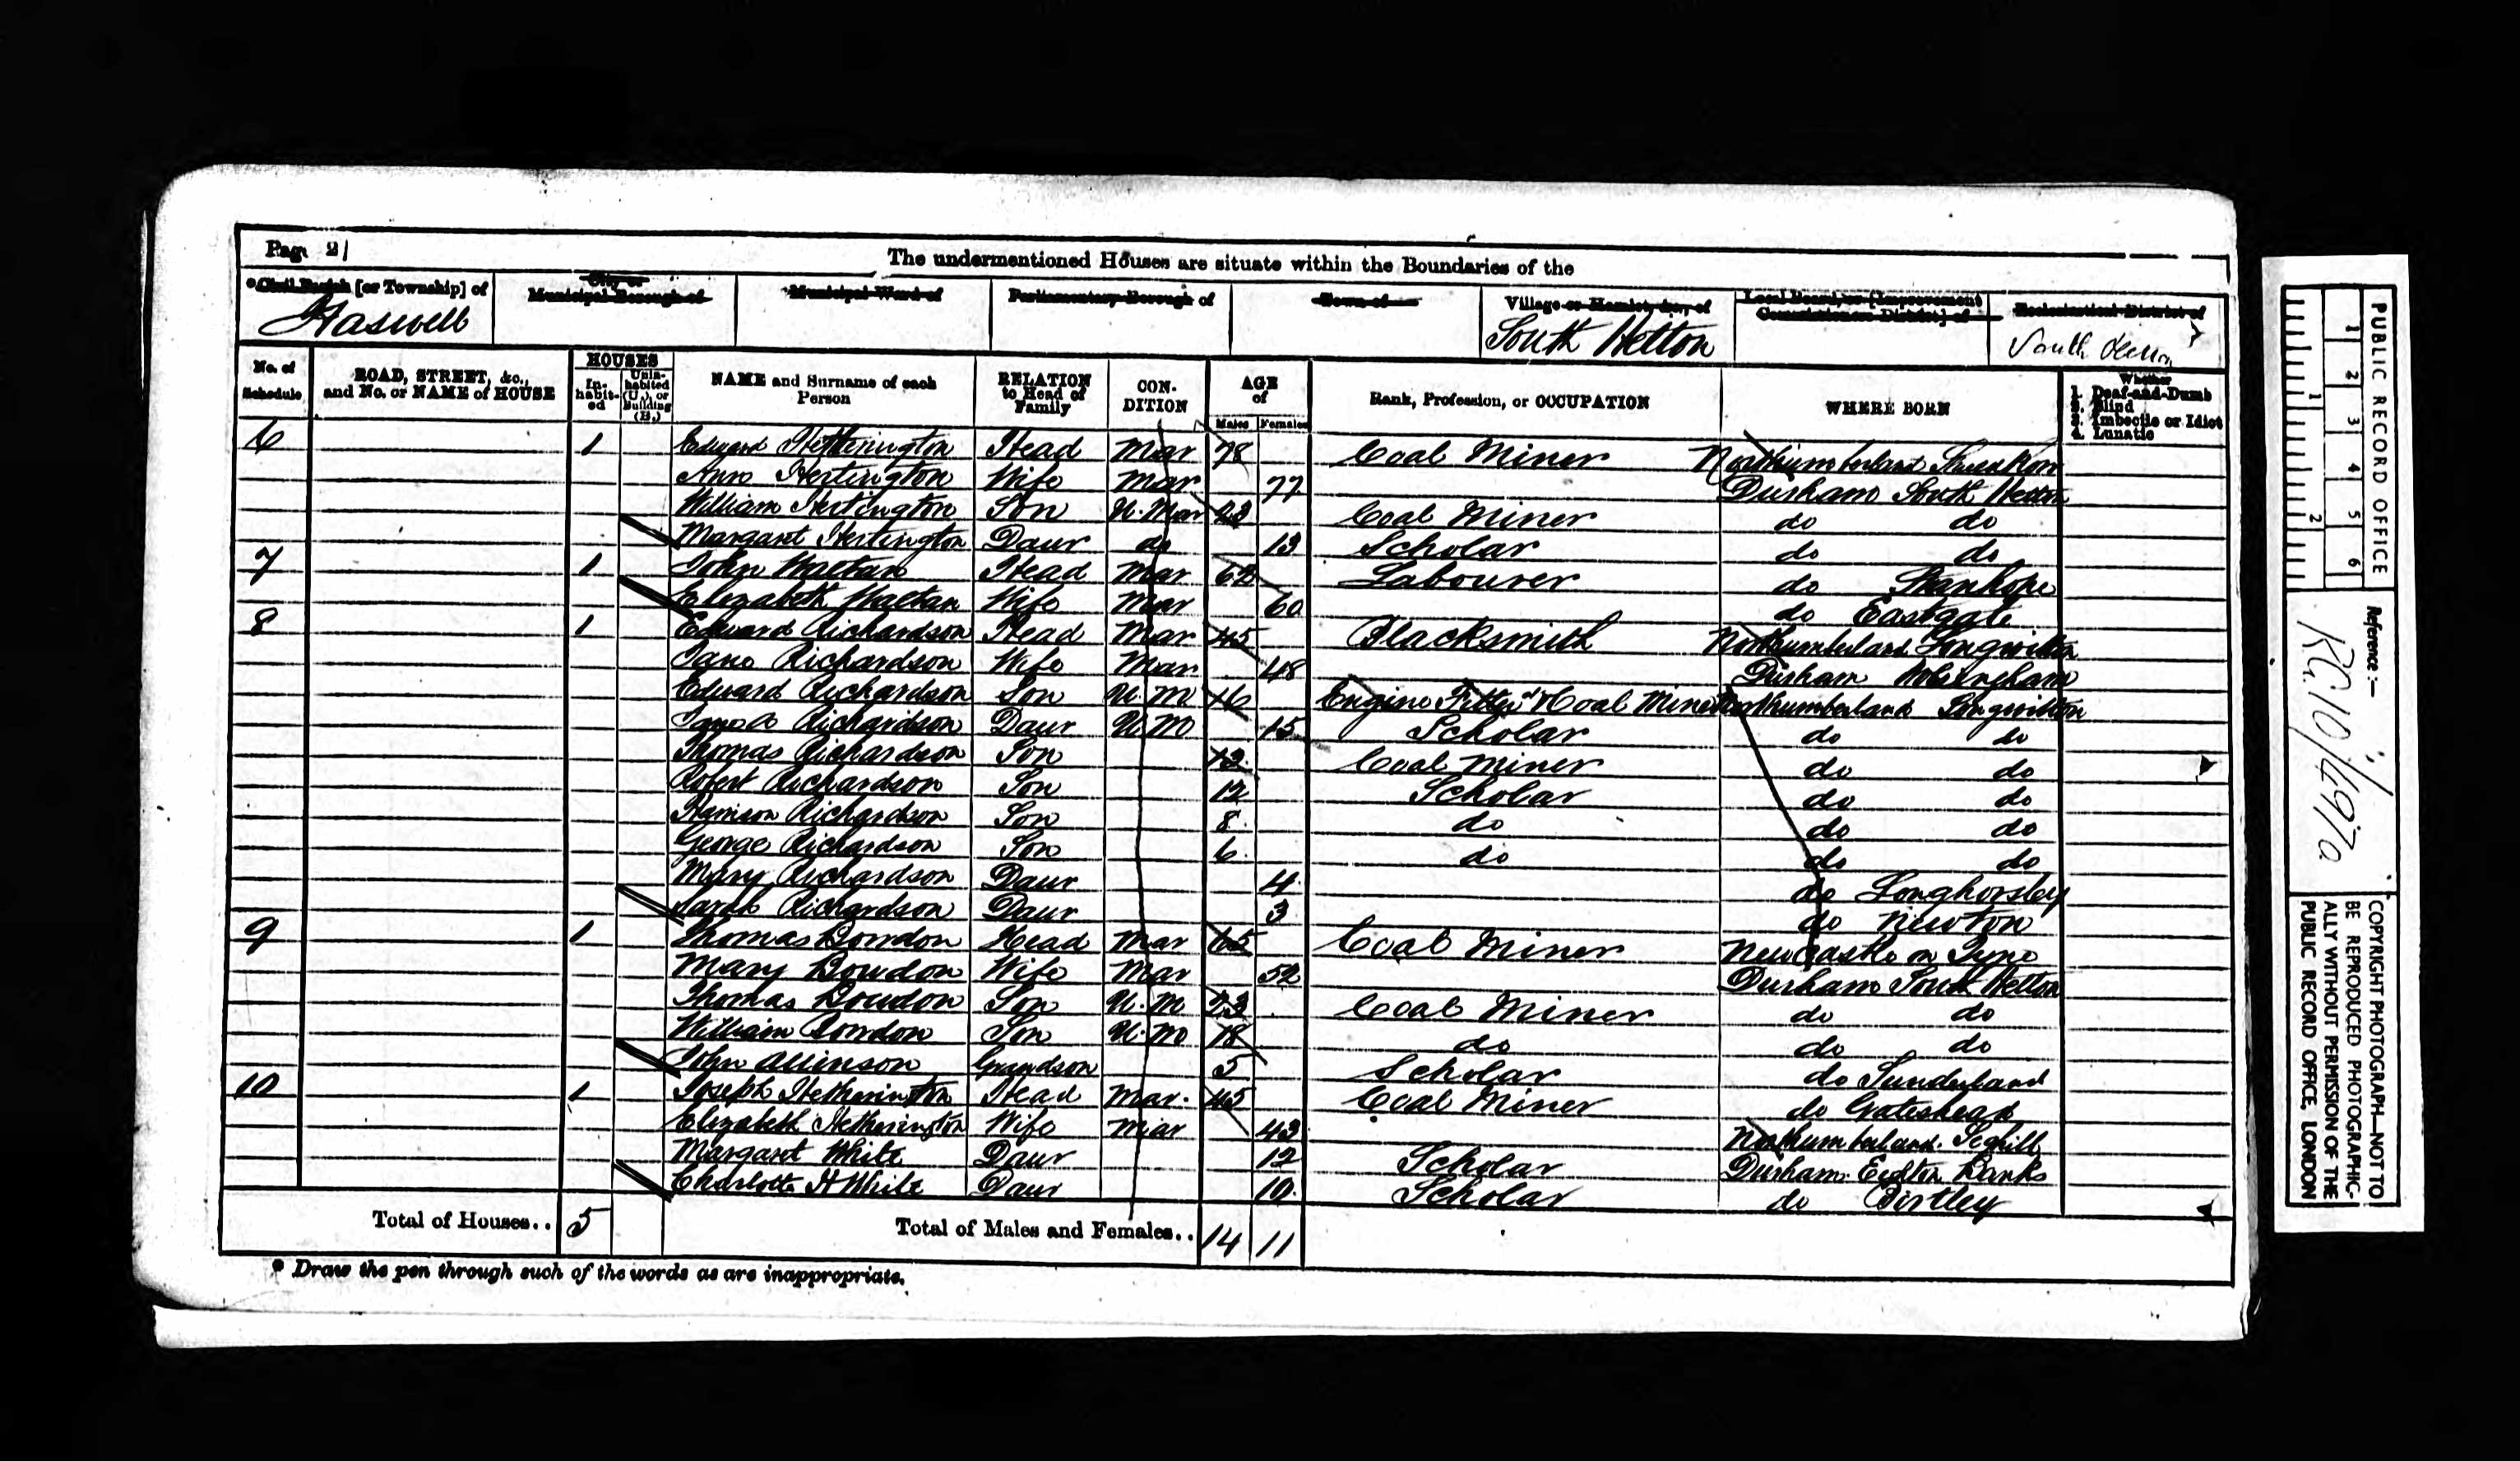 Page 21
The undermentioned Houses are situate within the Boundaries of the
Civil Parish [or Township] of
City or Municipal Borough of
Municipal Ward of
Parliamentary Borough of
Town of
Village or Hamlet, &c., of
Local Board, or [Improvement Commissioners District] of
Ecclesiastical District of
Haswell
South Hetton
South
No. of Schedule
ROAD, STREET, &c., and No. or NAME of HOUSE
HOUSES
In-habit-ed
Unin-habited (U.) or Building (B.)
NAME and Surname of each Person
RELATION to Head of Family
CON-DITION
AGE of
Males Females
Rank, Profession, or OCCUPATION
WHERE BORN
Whether
1. Deaf-and-Dumb
2. Blind
3. Imbecile or Idiot
4. Lunatic
6 1 Edward Hetherington Head Mar 78 Coal Miner Northumberland
Ann Hertington Wife Mar 77 Durham South Hetton
William Hertington Son U. Mar Coal Miner do do
Margaret Hertington Daur do 13 Scholar do do
7 1 John Head Mar 62 Labourer do Stanhope
Elizabeth Wife Mar 60 do Eastgate
8 1 Edward Richardson Head Mar 45 Blacksmith Northumberland Longwitton
Jane Richardson Wife Mar 48 Durham Wolsingham
Edward Richardson Son U. M 16 Engine Fitter Coal Mine Northumberland Longwitton
Jane A Richardson Daur U. M 15 Scholar do do
Thomas Richardson Son 13 Coal Miner do do
Robert Richardson Son 12 Scholar do do
Richardson Son 8 do do do
George Richardson Son 6 do do do
Mary Richardson Daur 4 do Longhorsley
Sarah Richardson Daur 3 do Newton
9 1 Thomas Bowdon Head Mar 65 Coal Miner Newcastle on Tyne
Mary Bowdon Wife Mar 52 Durham South Hetton
Thomas Bowdon Son U. M 23 Coal Miner do do
William Bowdon Son U. M 18 do do do
John Allinson Grandson 5 Scholar do Sunderland
10 1 Joseph Hetherington Head Mar. 45 Coal Miner do Gateshead
Elizabeth Hetherington Wife Mar 43 Northumberland Seghill
Margaret White Daur 12 Scholar Durham Eighton Banks
Charlotte H White Daur 10 Scholar do Birtley
Total of Houses.. 5
Total of Males and Females.. 14 11
* Draw the pen through such of the words as are inappropriate.
PUBLIC RECORD OFFICE
1 2 3 4 5 6
1 2
Reference:-
RG.10/4970
COPYRIGHT PHOTOGRAPH—NOT TO
BE REPRODUCED PHOTOGRAPHIC-
ALLY WITHOUT PERMISSION OF THE
PUBLIC RECORD OFFICE, LONDON